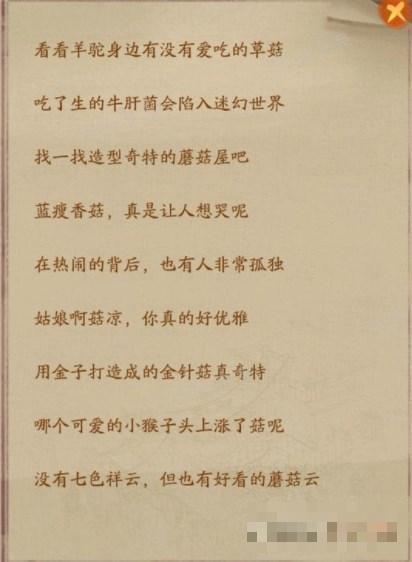 看看羊驼身边有没有爱吃的草菇
吃了生的牛肝菌会陷入迷幻世界
找一找造型奇特的蘑菇屋吧
蓝瘦香菇，真是让人想哭呢
在热闹的背后，也有人非常孤独
姑娘啊菇凉，你真的好优雅
用金子打造成的金针菇真奇特
哪个可爱的小猴子头上涨了菇呢
没有七色祥云，但也有好看的蘑菇云